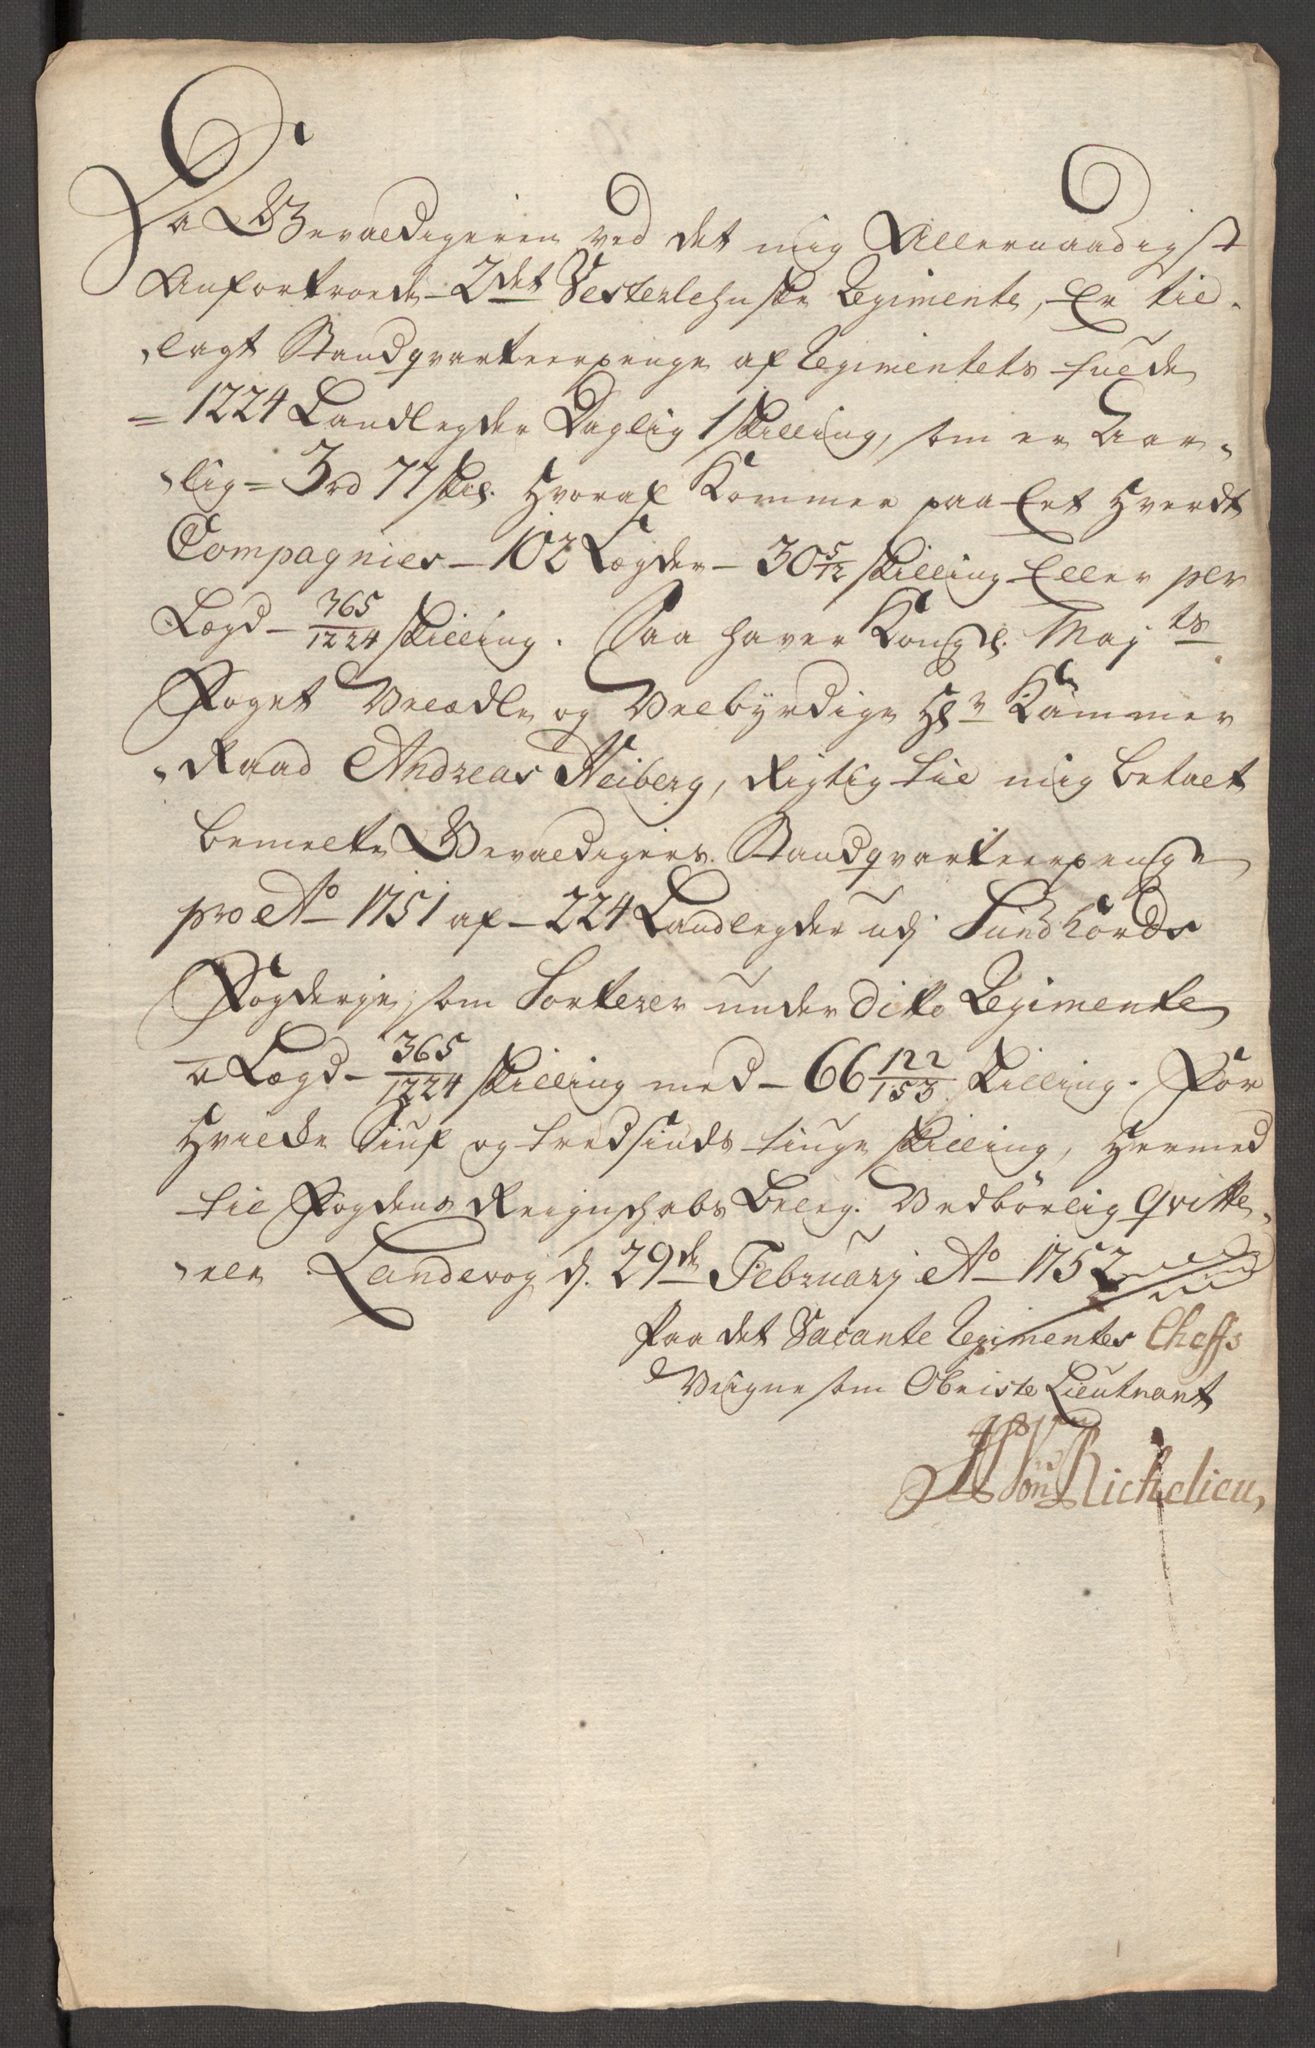 Da Gevaldigeren ved det mig Allernaadigst
Anfortroede 2det Vesterlehnske Regimente, Er til-
-lagt Standqvarteerpenge af Regimentets fulde
= 1224 Landlegder Daglig 1 skilling, som er Aar-
-lig = 3 rd 77 skil. Hvoraf Kommer paa Eet Hverdt
Compagnies - 102 Lægder - 30 5/12 skilling Eller per
Lægd - 365/1224 skilling. Saa haver Kongl. Maj.ts
Foget Velædle og Velbyrdige Hr Kammer
-Raad Andreas Heiberg, Rigtig til mig betalt
bemelte Gevaldigers Standqvarteerpenge
pro Ao 1751 af - 224 Landlegder udj Sundhörds
Fogderje, som Sorterer under Ditto Regimente
a Lægd - 365/1224 skilling med - 66 122/153 skilling. For
Hvilke Siuf og tredsinds tiuge skilling, Hermed
til Fogdens Reignschabs Beleg. Vedbörlig Qvitte-
-rer. Landevog d. 29de February Ao 1752
Paa det Vacante Regimentes Cheffs
Veigne som Obriste Lieutnant
Von Richelieu,